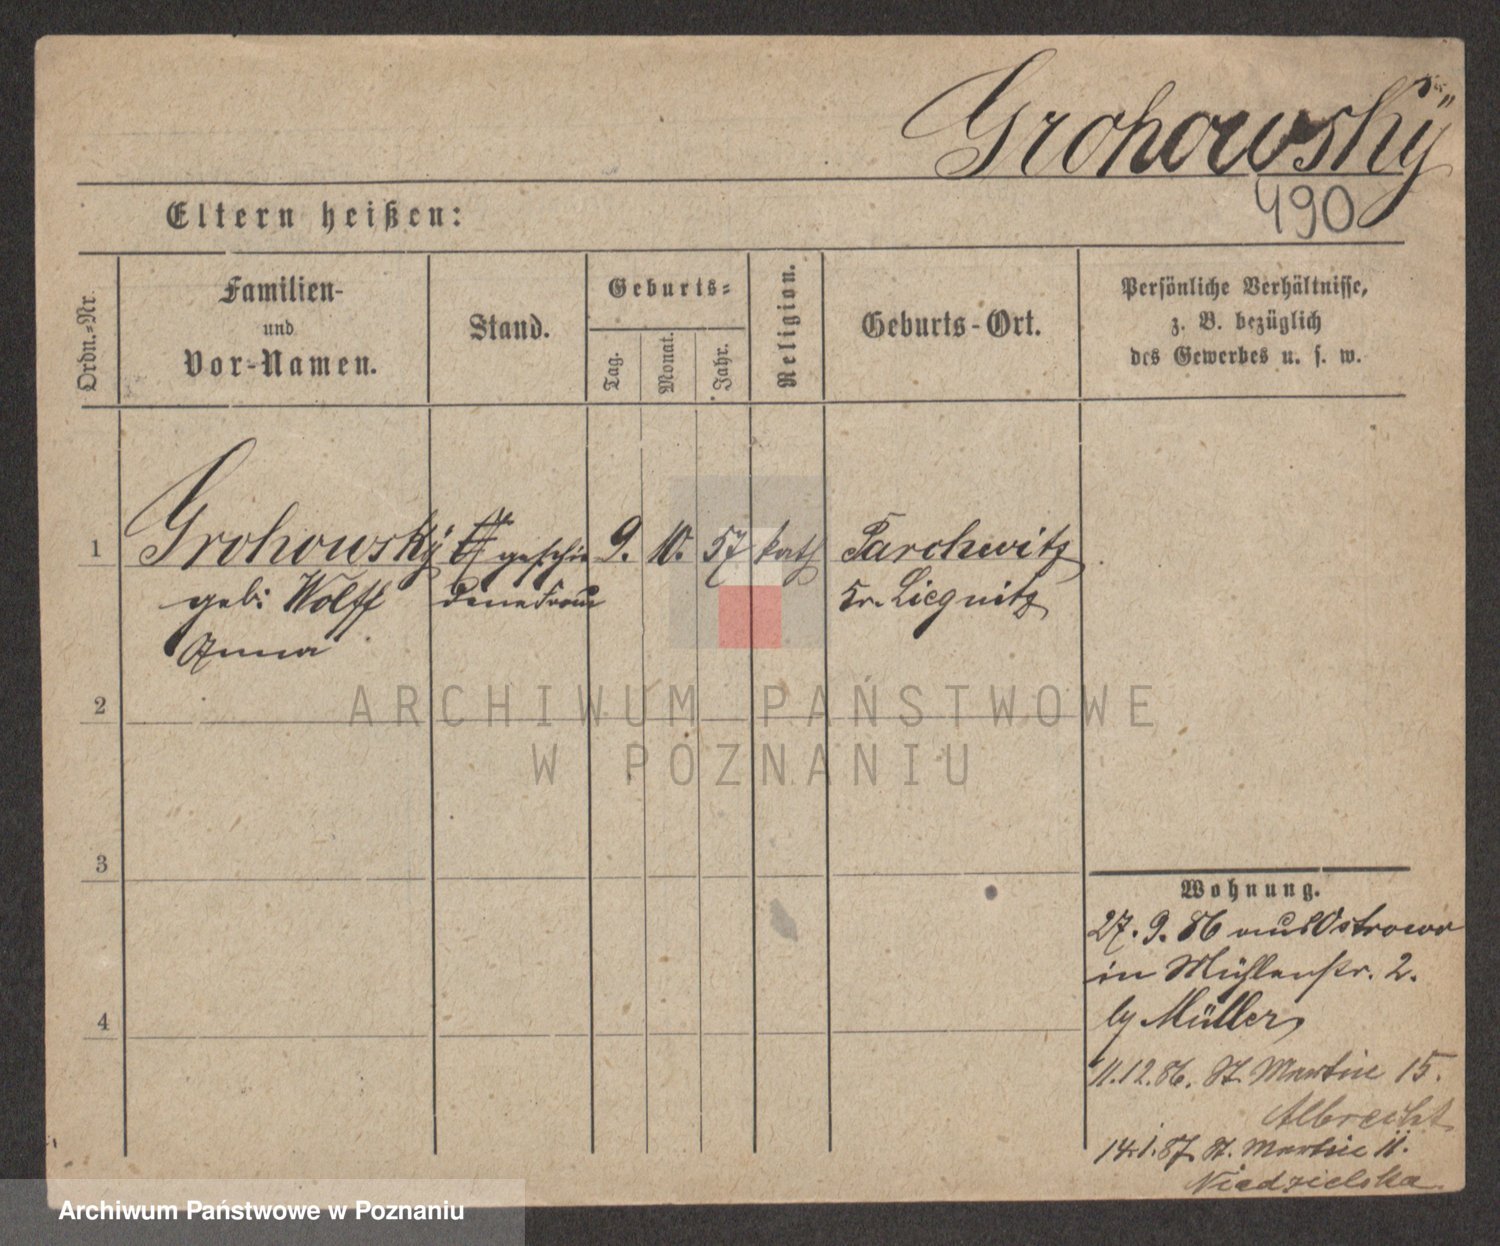 Grohowskÿ
490
Eltern heißen:
Ordn.-Nr.
Familien-
und
Vor-Namen.
Stand.
Geburts-
Tag.
Monat.
Jahr.
Religion.
Geburts-Ort.
Persönliche Verhältnisse,
z. B. bezüglich
des Gewerbes u. s. w.
1 Grohowskÿ geschie 9. 10. 57 kath Parchwitz
geb: Wolff dene Frau Kr. Liegnitz
Anna
ARCHIWUM PAŃSTWOWE
W POZNANIU
2
3
4
Wohnung.
27. 9. 86 aus Ostrowo
in Mühlenstr. 2.
by Müller
11.12.86. St. Martin 15.
Albrecht
14.1.87. St. Martin 11.
Niedzielska
Archiwum Państwowe w Poznaniu